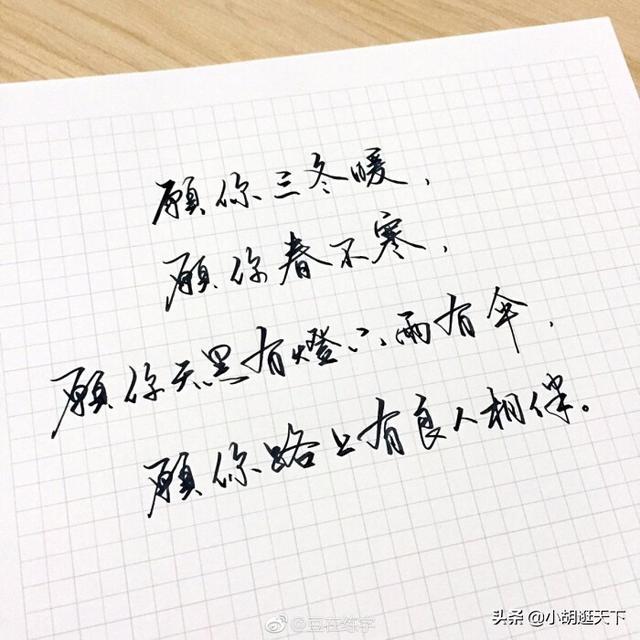 願你三冬暖，
願你春不寒，
願你天黑有燈下雨有伞，
願你路上有良人相伴。
@豆在练字
头条 @小胡逛天下